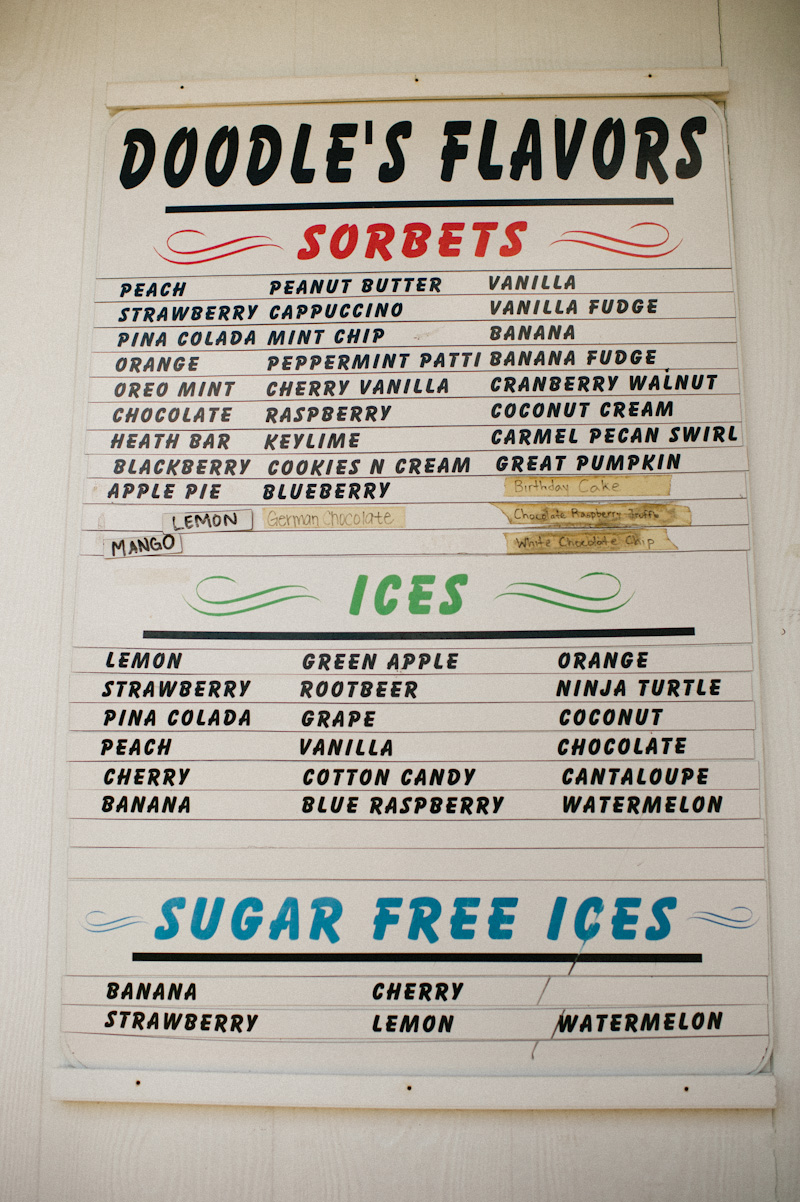 DOODLE'S FLAVORS
SORBETS
PEACH PEANUT BUTTER VANILLA
STRAWBERRY CAPPUCCINO VANILLA FUDGE
PINA COLADA MINT CHIP BANANA
ORANGE PEPPERMINT PATTI BANANA FUDGE
OREO MINT CHERRY VANILLA CRANBERRY WALNUT
CHOCOLATE RASPBERRY COCONUT CREAM
HEATH BAR KEYLIME CARMEL PECAN SWIRL
BLACKBERRY COOKIES N CREAM GREAT PUMPKIN
APPLE PIE BLUEBERRY Birthday Cake
LEMON German Chocolate Chocolate Raspberry
MANGO White Chocolate Chip
ICES
LEMON GREEN APPLE ORANGE
STRAWBERRY ROOTBEER NINJA TURTLE
PINA COLADA GRAPE COCONUT
PEACH VANILLA CHOCOLATE
CHERRY COTTON CANDY CANTALOUPE
BANANA BLUE RASPBERRY WATERMELON
SUGAR FREE ICES
BANANA CHERRY
STRAWBERRY LEMON WATERMELON